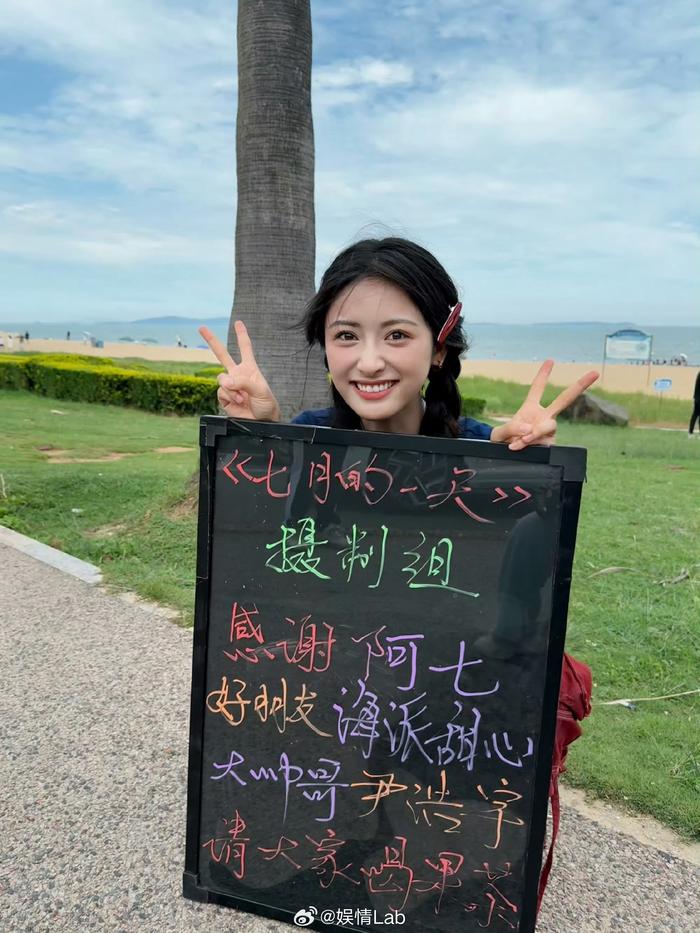 《七月的一天》
摄制组
感谢阿七
好朋友海派甜心
大帅哥尹浩宇
请大家喝果茶
@娱情Lab